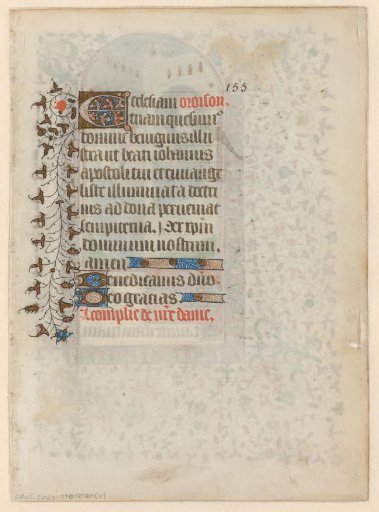 155
Ecclesiam oroison.
tuam quesum᷒
domine benignus illu
stra ut beati iohannis
apostoli tui et euuange
liste illuminata doctri
nis ad dona perueniat
sempiterna. Per xpm
dominum nostrum.
amen
Benedicamus dño.
Deo gracias.
A complie de nr̃e dame.